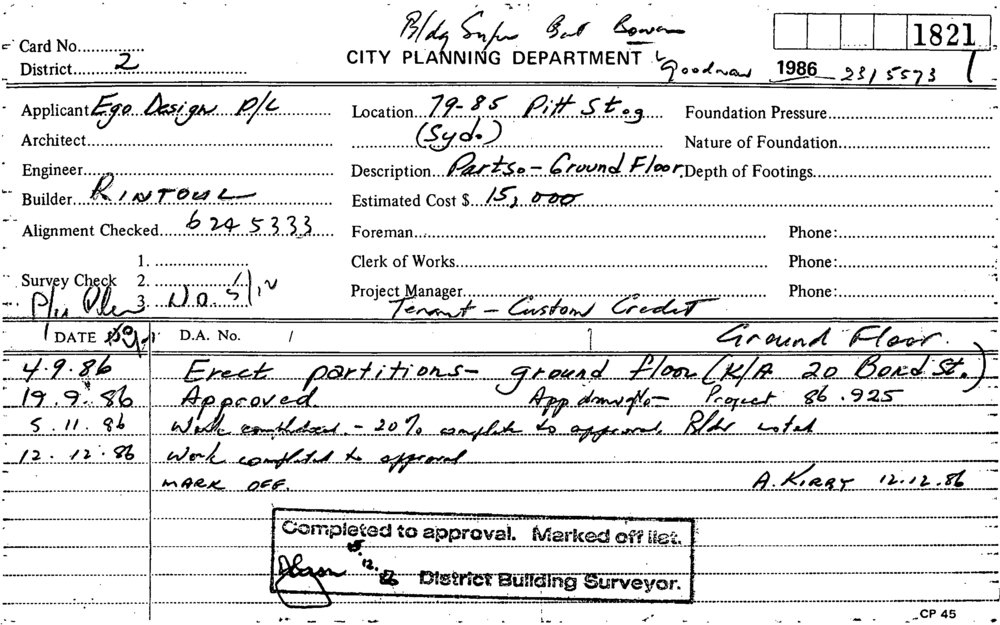 Bldg
Card No.............. CITY PLANNING DEPARTMENT Goodman 1821
District 2 1986 23/5573 1
Applicant Ego Design P/L Location 79-85 Pitt St. Foundation Pressure
Architect (Syd.) Nature of Foundation
Engineer Description Parts - Ground Floor Depth of Footings
Builder RINTOUL Estimated Cost $ 15,000
Alignment Checked 624 5333 Foreman Phone:
1. Clerk of Works Phone:
Survey Check 2.
3. No. Project Manager Phone:
Tenant - Custom Credit
DATE D.A. No. / Ground Floor.
4.9.86 Erect partitions - ground floor (K/A 20 Bond St.)
19.9.86 Approved App drawgs - Project 86.925
5.11.86 Work - 20% complete to approval. Bldr noted
12.12.86 Work completed to approval
MARK OFF. A. KIRBY 12.12.86
Completed to approval. Marked off list.
15.12.86 District Building Surveyor.
CP 45